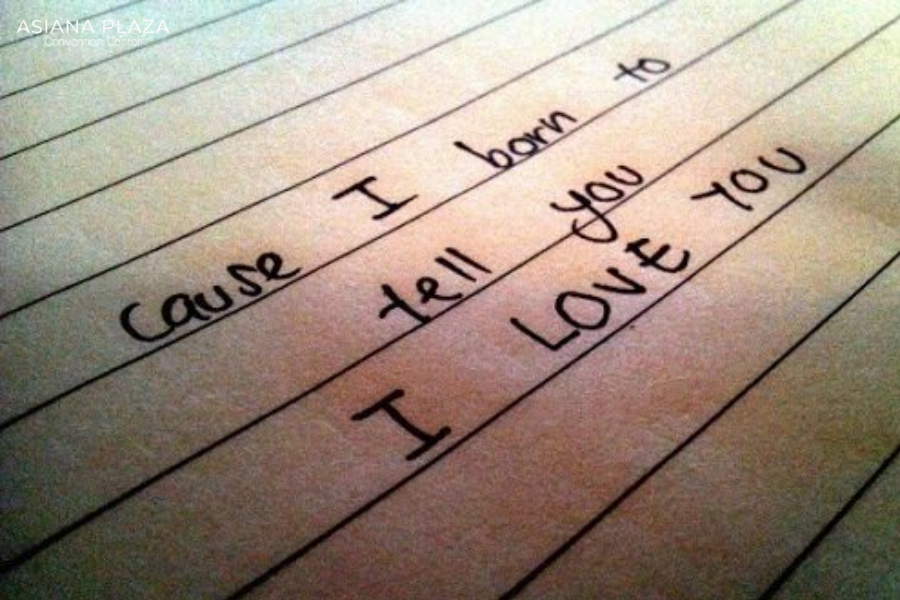 ASIANA PLAZA
Convention Center
cause I born to
tell you
I LOVE YOU